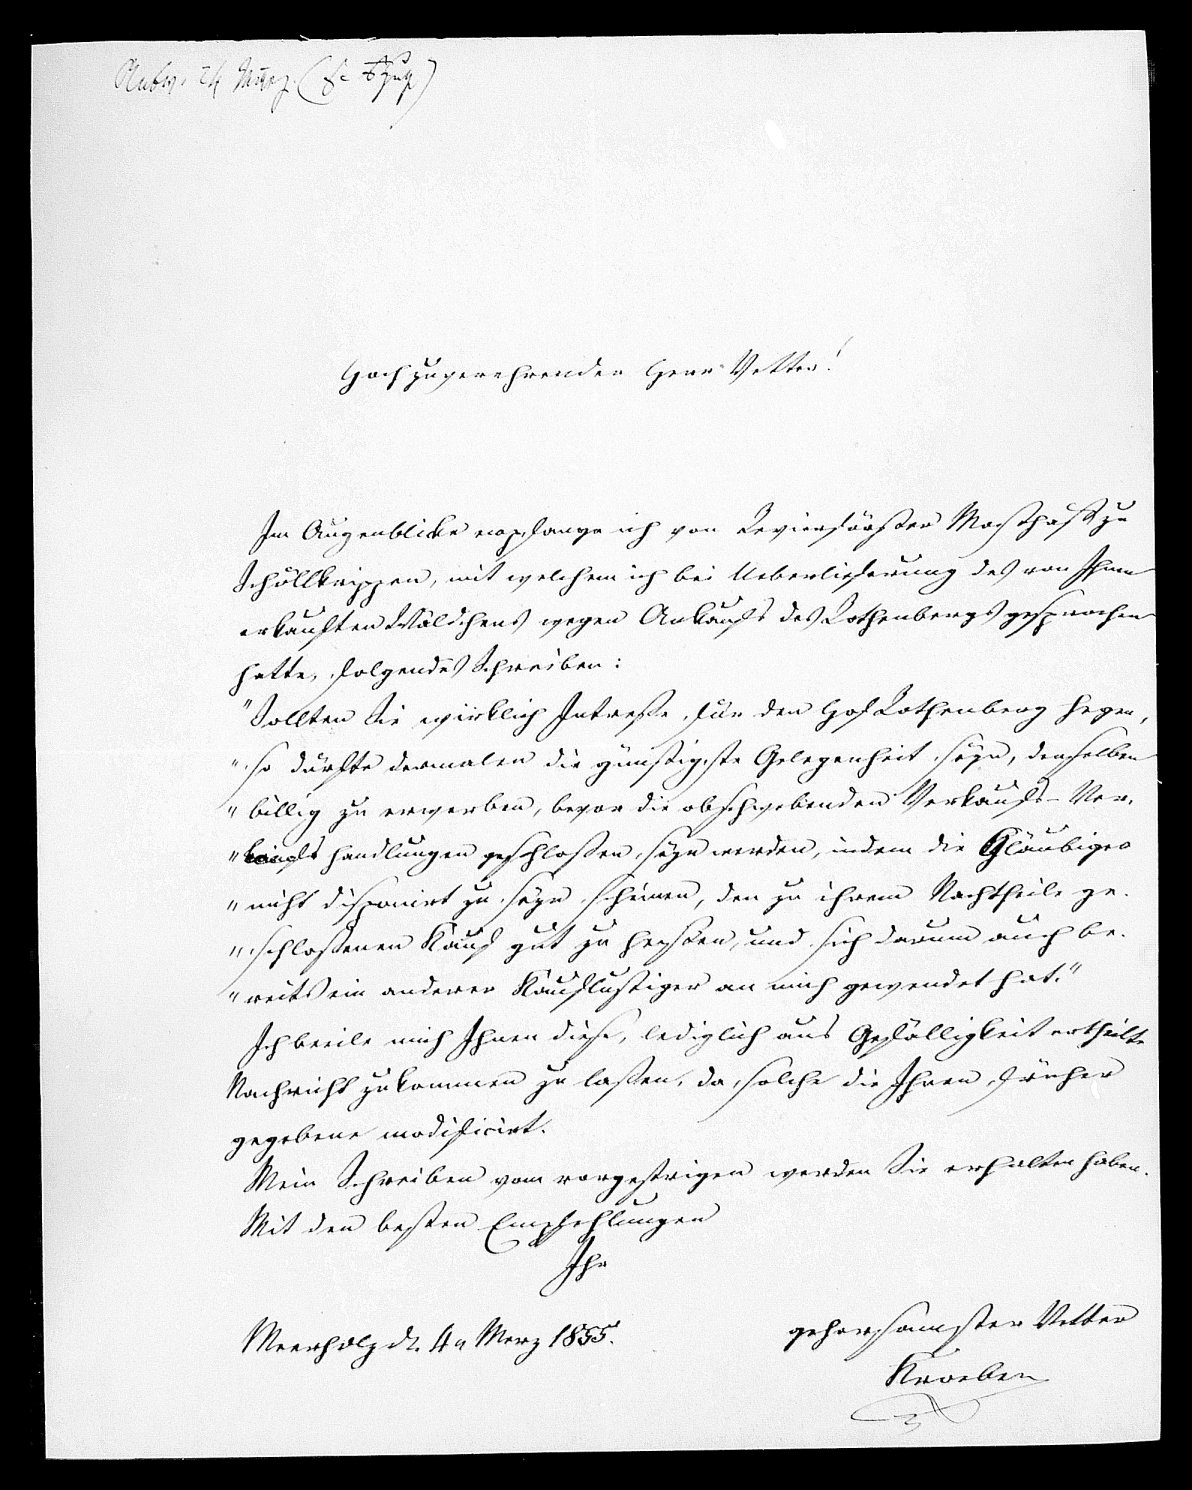 Hochzuverehrender Herr Vetter!
Im Augenblicke empfange ich von Revierförster zu
Schöllkrippen, mit welchem ich bei Ueberlieferung des von Ihnen
erkauften Wäldchens wegen Ankaufs des Rothenbergs gesprochen
hatte, folgendes Schreiben:
"Sollten Sie wirklich Intresse für den Hof Rothenberg hegen,
" so dürfte dermalen die günstigste Gelegenheit seyn, denselben
" billig zu erwerben, bevor die obschwebenden Verkaufs-Ver-
" handlungen geschlossen seyn werden, indem die Gläubiger
" nicht disponirt zu seyn scheinen, den zu ihrem Nachtheile ge-
" schlossenen Kauf gut zu heissen, und sich darum auch be-
" reits ein anderer Kauflustiger an mich gewendet hat."
Ich beeile mich Ihnen diese, lediglich aus Gefälligkeit ertheilte
Nachricht zukommen zu lassen, da solche die Ihnen früher
gegebene modificirt.
Mein Schreiben vom vorgestrigen werden Sie erhalten haben.
Mit den besten Empfehlungen
Ihr
Meerholz d. 4n Merz 1855.
gehorsamster Vetter
Kroeber